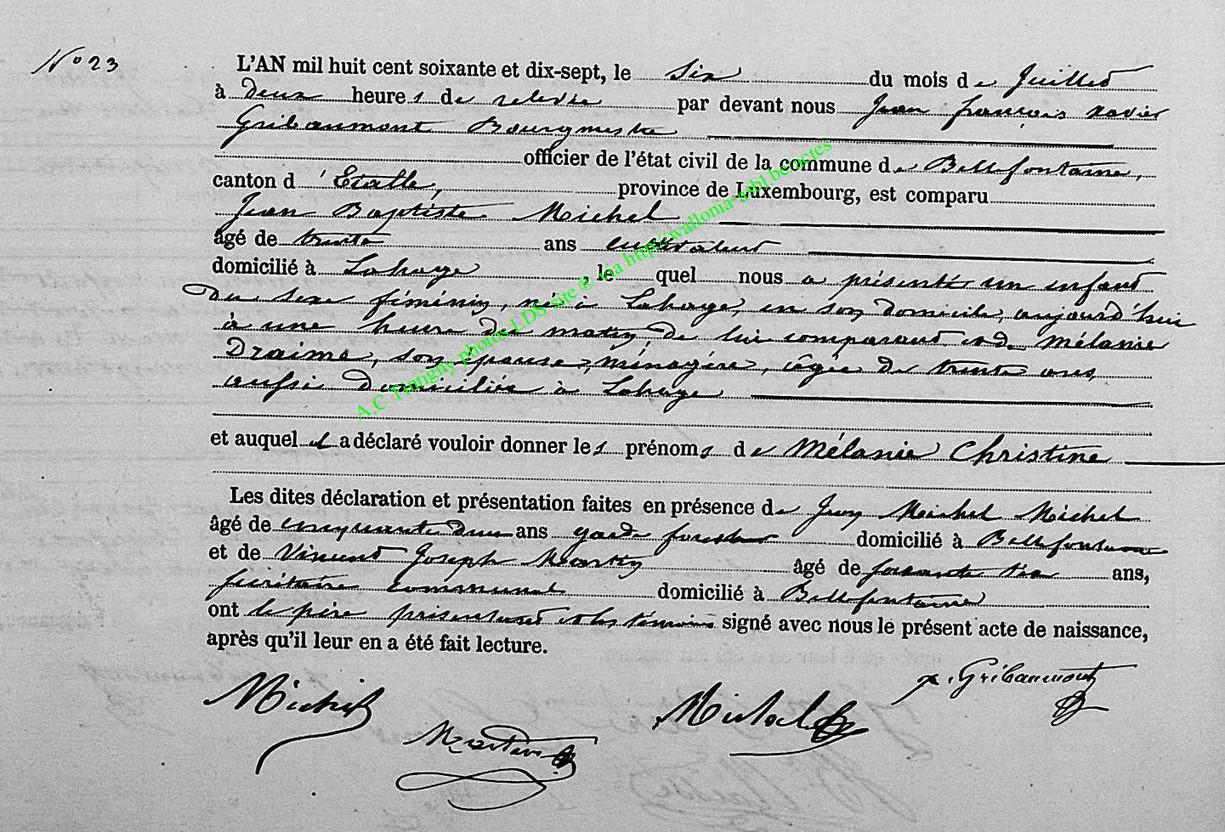 N° 23
L'AN mil huit cent soixante et dix-sept, le six du mois de Juillet
à deux heures de relevée par devant nous Jean françois xavier
Gribaumont Bourgmestre
officier de l'état civil de la commune de Bellefontaine,
canton d'Etalle, province de Luxembourg, est comparu
Jean Baptiste Michel
âgé de trente ans cultivateur
domicilié à Lahage, le quel nous a présenté un enfant
du sexe féminin, né à Lahage, en son domicile, aujourd'hui
à une heure du matin, de lui comparant et de Mélanie
Draime, son épouse, ménagère, âgée de trente ans,
aussi domiciliée à Lahage
et auquel il a déclaré vouloir donner les prénoms de Mélanie Christine
Les dites déclaration et présentation faites en présence de Jean Michel Michel
âgé de cinquante deux ans garde forestier domicilié à Bellefontaine
et de Vincent Joseph Martin âgé de soixante ans,
secrétaire communal domicilié à Bellefontaine
ont le père présentant et les témoins signé avec nous le présent acte de naissance,
après qu'il leur en a été fait lecture.
Michel
Martin
Michel
x. Gribaumont
A.C Tintigny photos LDS site © via http://wallonia-asbl.be/actes